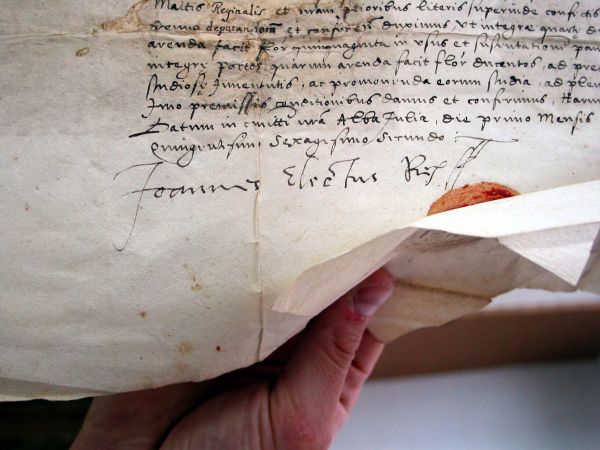 Maĩtis Reginalis et nrãm prioribus literis superinde confectis
deputandõm et conferen̄ duximus, Vt integræ quartæ
arenda facit flor quinquaginta in vsus et sustentationem
integri partes quarum arenda facit flor ducentos, ad
studiosæ Iuuentutis, ac promouenda eorum studia, ad
Imo premissis conditionibus damus et conferimus, Harum
Datum in Ciuitte nrã Alba Iulia, die primo Mensis
Quingentesimo Sexagesimo Secundo:
Joannes Electus Rex